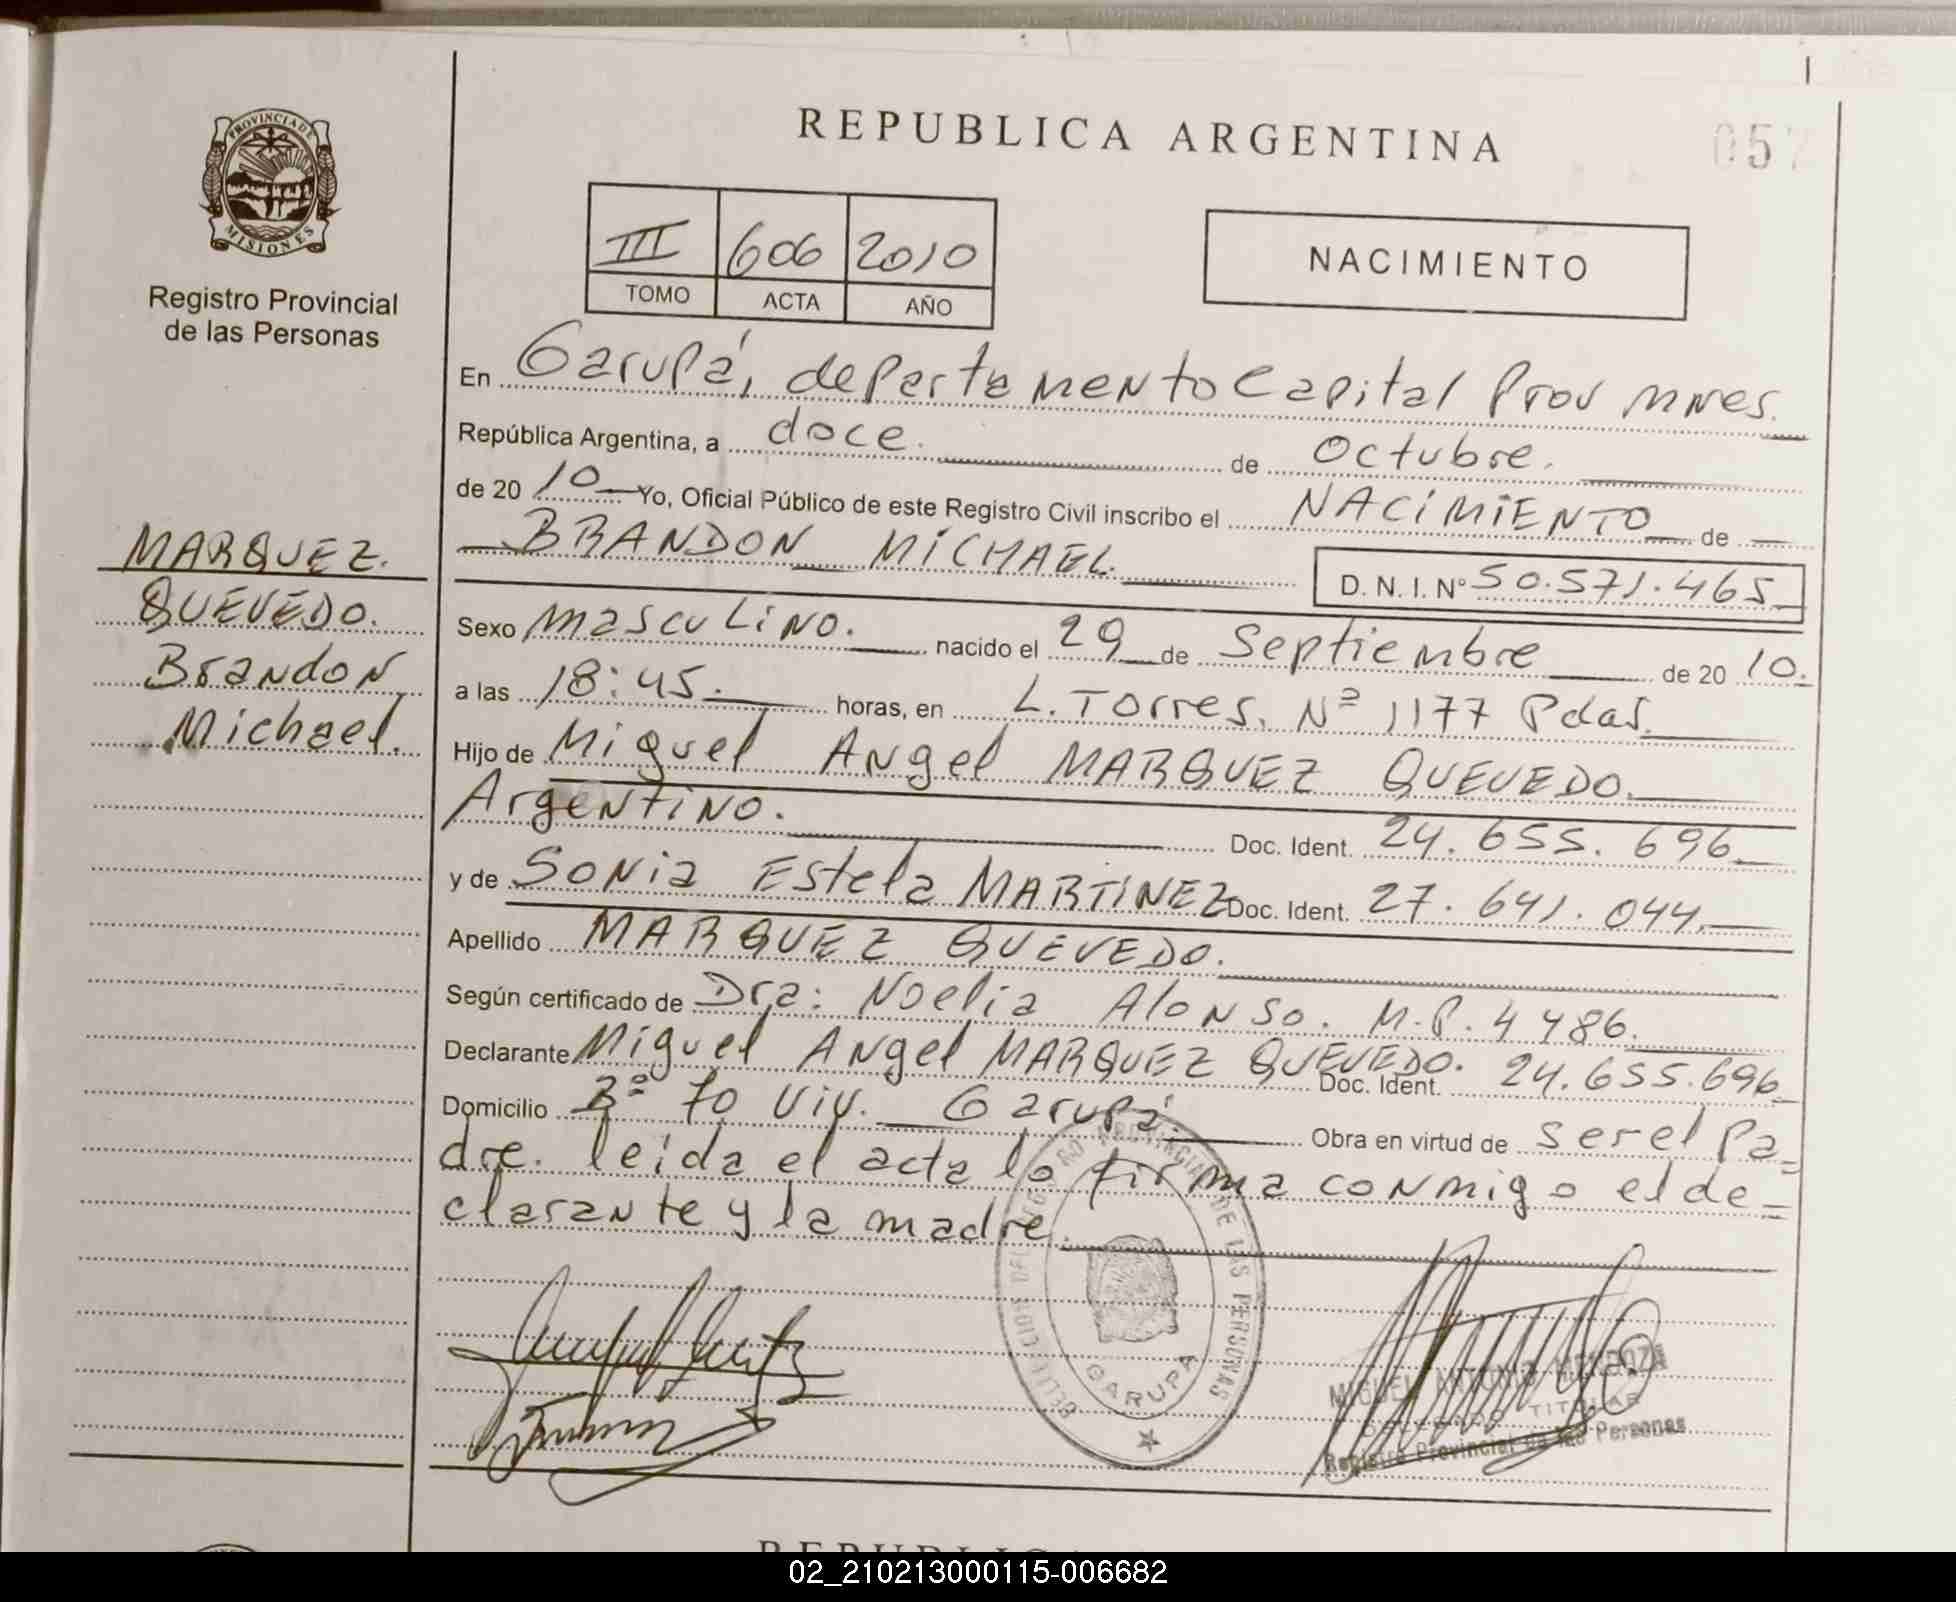 REPUBLICA ARGENTINA
057
PROVINCIA DE
MISIONES
Registro Provincial
de las Personas
III 606 2010
TOMO ACTA AÑO
NACIMIENTO
En Garupá, departamento Capital Prov Mnes.
República Argentina, a doce. de Octubre.
de 20 10 Yo, Oficial Público de este Registro Civil inscribo el NACIMIENTO de
BRANDON MICHAEL. D. N. I. Nº 50.571.465
MARQUEZ.
QUEVEDO.
Brandon
Michael.
Sexo masculino. nacido el 29 de Septiembre de 20 10.
a las 18:45. horas, en L. Torres. Nº 1177 Pdas.
Hijo de Miguel Angel MARQUEZ QUEVEDO.
Argentino. Doc. Ident. 24.655.696
y de Sonia Estela MARTINEZ Doc. Ident. 27.641.044.
Apellido MARQUEZ QUEVEDO.
Según certificado de Dra: Noelia Alonso. M.P. 4486.
Declarante Miguel Angel MARQUEZ QUEVEDO. Doc. Ident. 24.655.696
Domicilio Bº 70 Viv. Garupá. Obra en virtud de ser el Pa=
dre. leída el acta lo firma conmigo el de=
clarante y la madre.
REGISTRO PROVINCIAL DE LAS PERSONAS
GARUPA
MIGUEL ANTONIO MENDOZA
TITULAR
Registro Provincial de las Personas
02_210213000115-006682